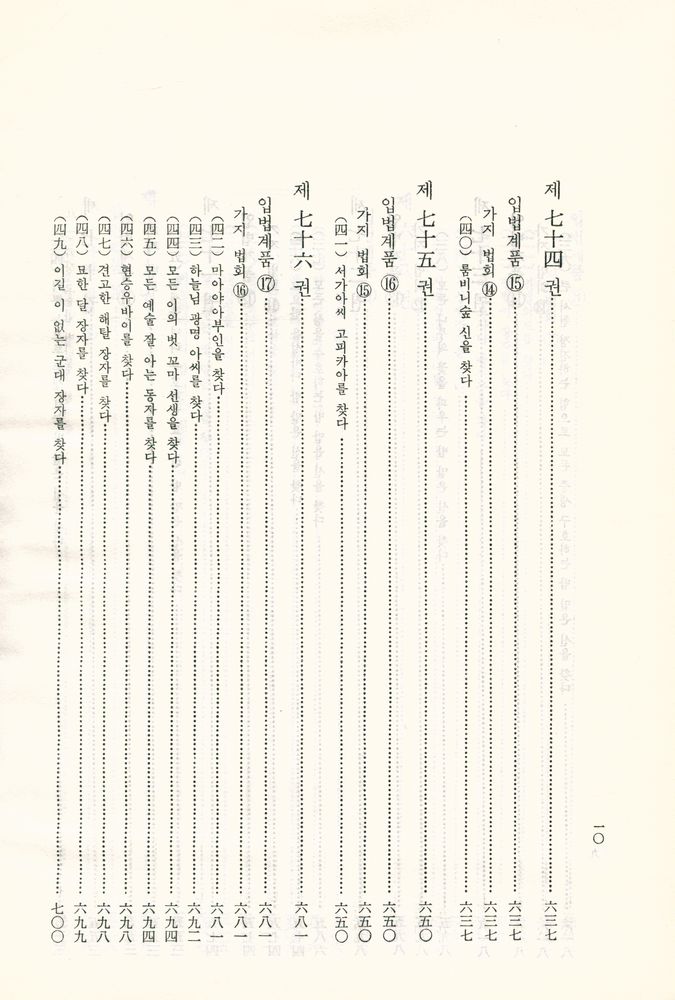 제 七十四 권 六三七
입법계품 ⑮ 六三七
가지 법회 ⑭ 六三七
(四〇) 룸비니숲 신을 찾다 六三七
제 七十五 권 六五〇
입법계품 ⑯ 六五〇
가지 법회 ⑮ 六五〇
(四一) 서가아씨 고피카아를 찾다 六五〇
제 七十六 권 六八一
입법계품 ⑰ 六八一
가지 법회 ⑯ 六八一
(四二) 마아야아부인을 찾다 六八一
(四三) 하늘님 광명 아씨를 찾다 六九二
(四四) 모든 이의 벗 꼬마 선생을 찾다 六九四
(四五) 모든 예술 잘 아는 동자를 찾다 六九四
(四六) 현승우바이를 찾다 六九八
(四七) 견고한 해탈 장자를 찾다 六九八
(四八) 묘한 달 장자를 찾다 六九九
(四九) 이길 이 없는 군대 장자를 찾다 七〇〇
一〇